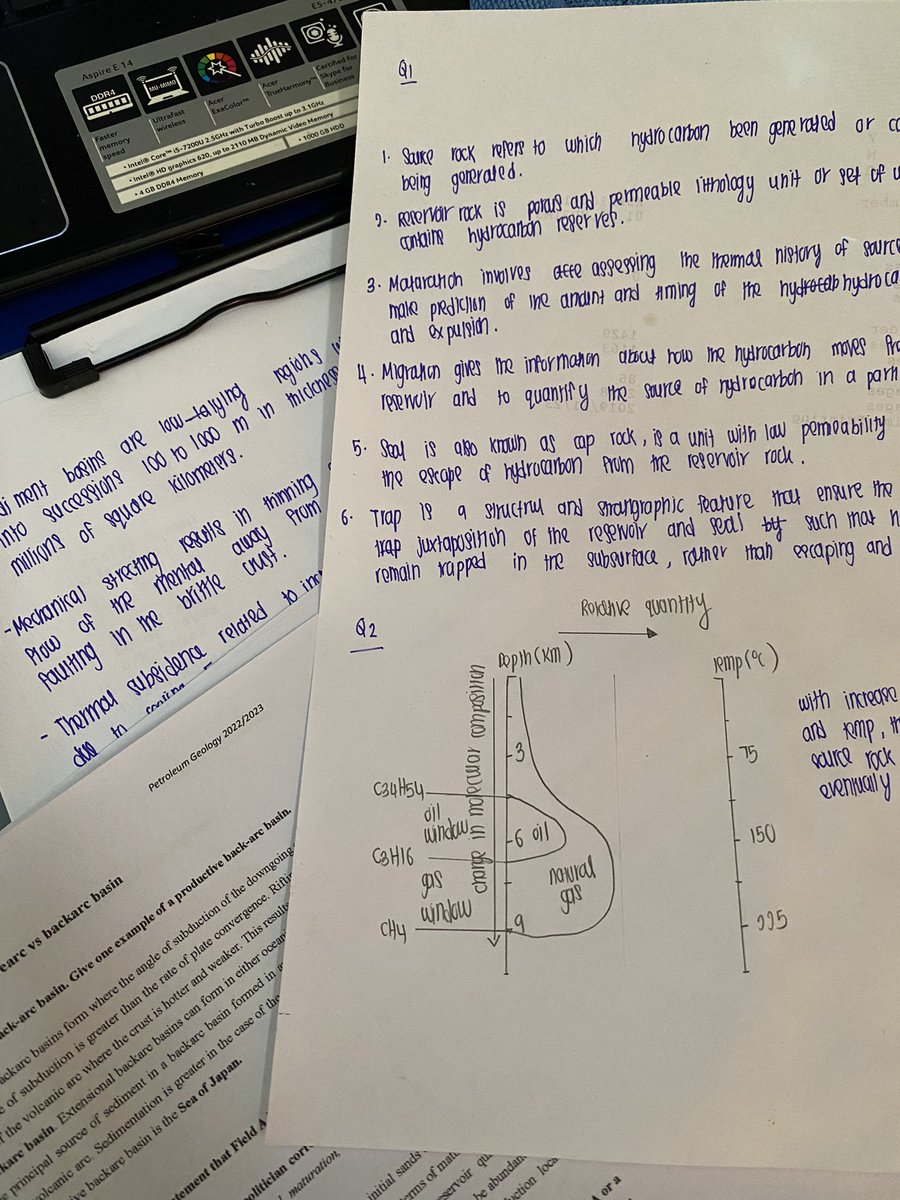 Aspire E 14
E5-47
DDR4
MU-MIMO
Faster memory speed
Ultrafast wireless
Acer ExaColor™
Acer TrueHarmony™
Certified for Skype for Business
• Intel® Core™ i5-7200U 2.5GHz with Turbo Boost up to 3.1GHz
• Intel® HD graphics 620, up to 2110 MB Dynamic Video Memory
• 4 GB DDR4 Memory
• 1000 GB HDD
Q1
1. Source rock refers to which hydrocarbon been generated or
being generated.
2. Reservoir rock is porous and permeable lithology unit or set of
contains hydrocarbon reserves.
3. Maturation involves assessing the thermal history of source
make prediction of the amount and timing of the hydroca
and expulsion.
4. Migration gives the information about how the hydrocarbon moves
reservoir and to quantify the source of hydrocarbon in a
5. Seal is also known as cap rock, is a unit with low permeability
the escape of hydrocarbon from the reservoir rock.
6. Trap is a structrul and stratigraphic feature that ensure the
trap juxtaposition of the reservoir and seal by such that h
remain trapped in the subsurface, rather than escaping and
Q2
Relative quantity
Depth (km)
Temp (°C)
change in molecular composition
3
6
9
C34H54
oil window
C8H16
gas window
CH4
oil
natural gas
75
150
225
with increase
and temp, th
source rock
eventually
diment basins are low-laying regions
into successions 100 to 1000 m in thickness
millions of square kilometers.
- Mechanical streching results in thinning
flow of the mental away from
faulting in the brittle crust.
- Thermal subsidence related to
due to
Petroleum Geology 2022/2023
earc vs backarc basin
ack-arc basin. Give one example of a productive back-arc basin.
ackarc basins form where the angle of subduction of the downgoing
e of subduction is greater than the rate of plate convergence. Riftin
f the volcanic arc where the crust is hotter and weaker. This results
karc basin. Extensional backarc basins can form in either ocean
e principal source of sediment in a backarc basin formed in a
volcanic arc. Sedimentation is greater in the case of the
ive backarc basin is the Sea of Japan.
tement that Field A
olitician corr
maturation,
initial sands
erms of mat
eservoir qu
be abundan
duction loca
A or a